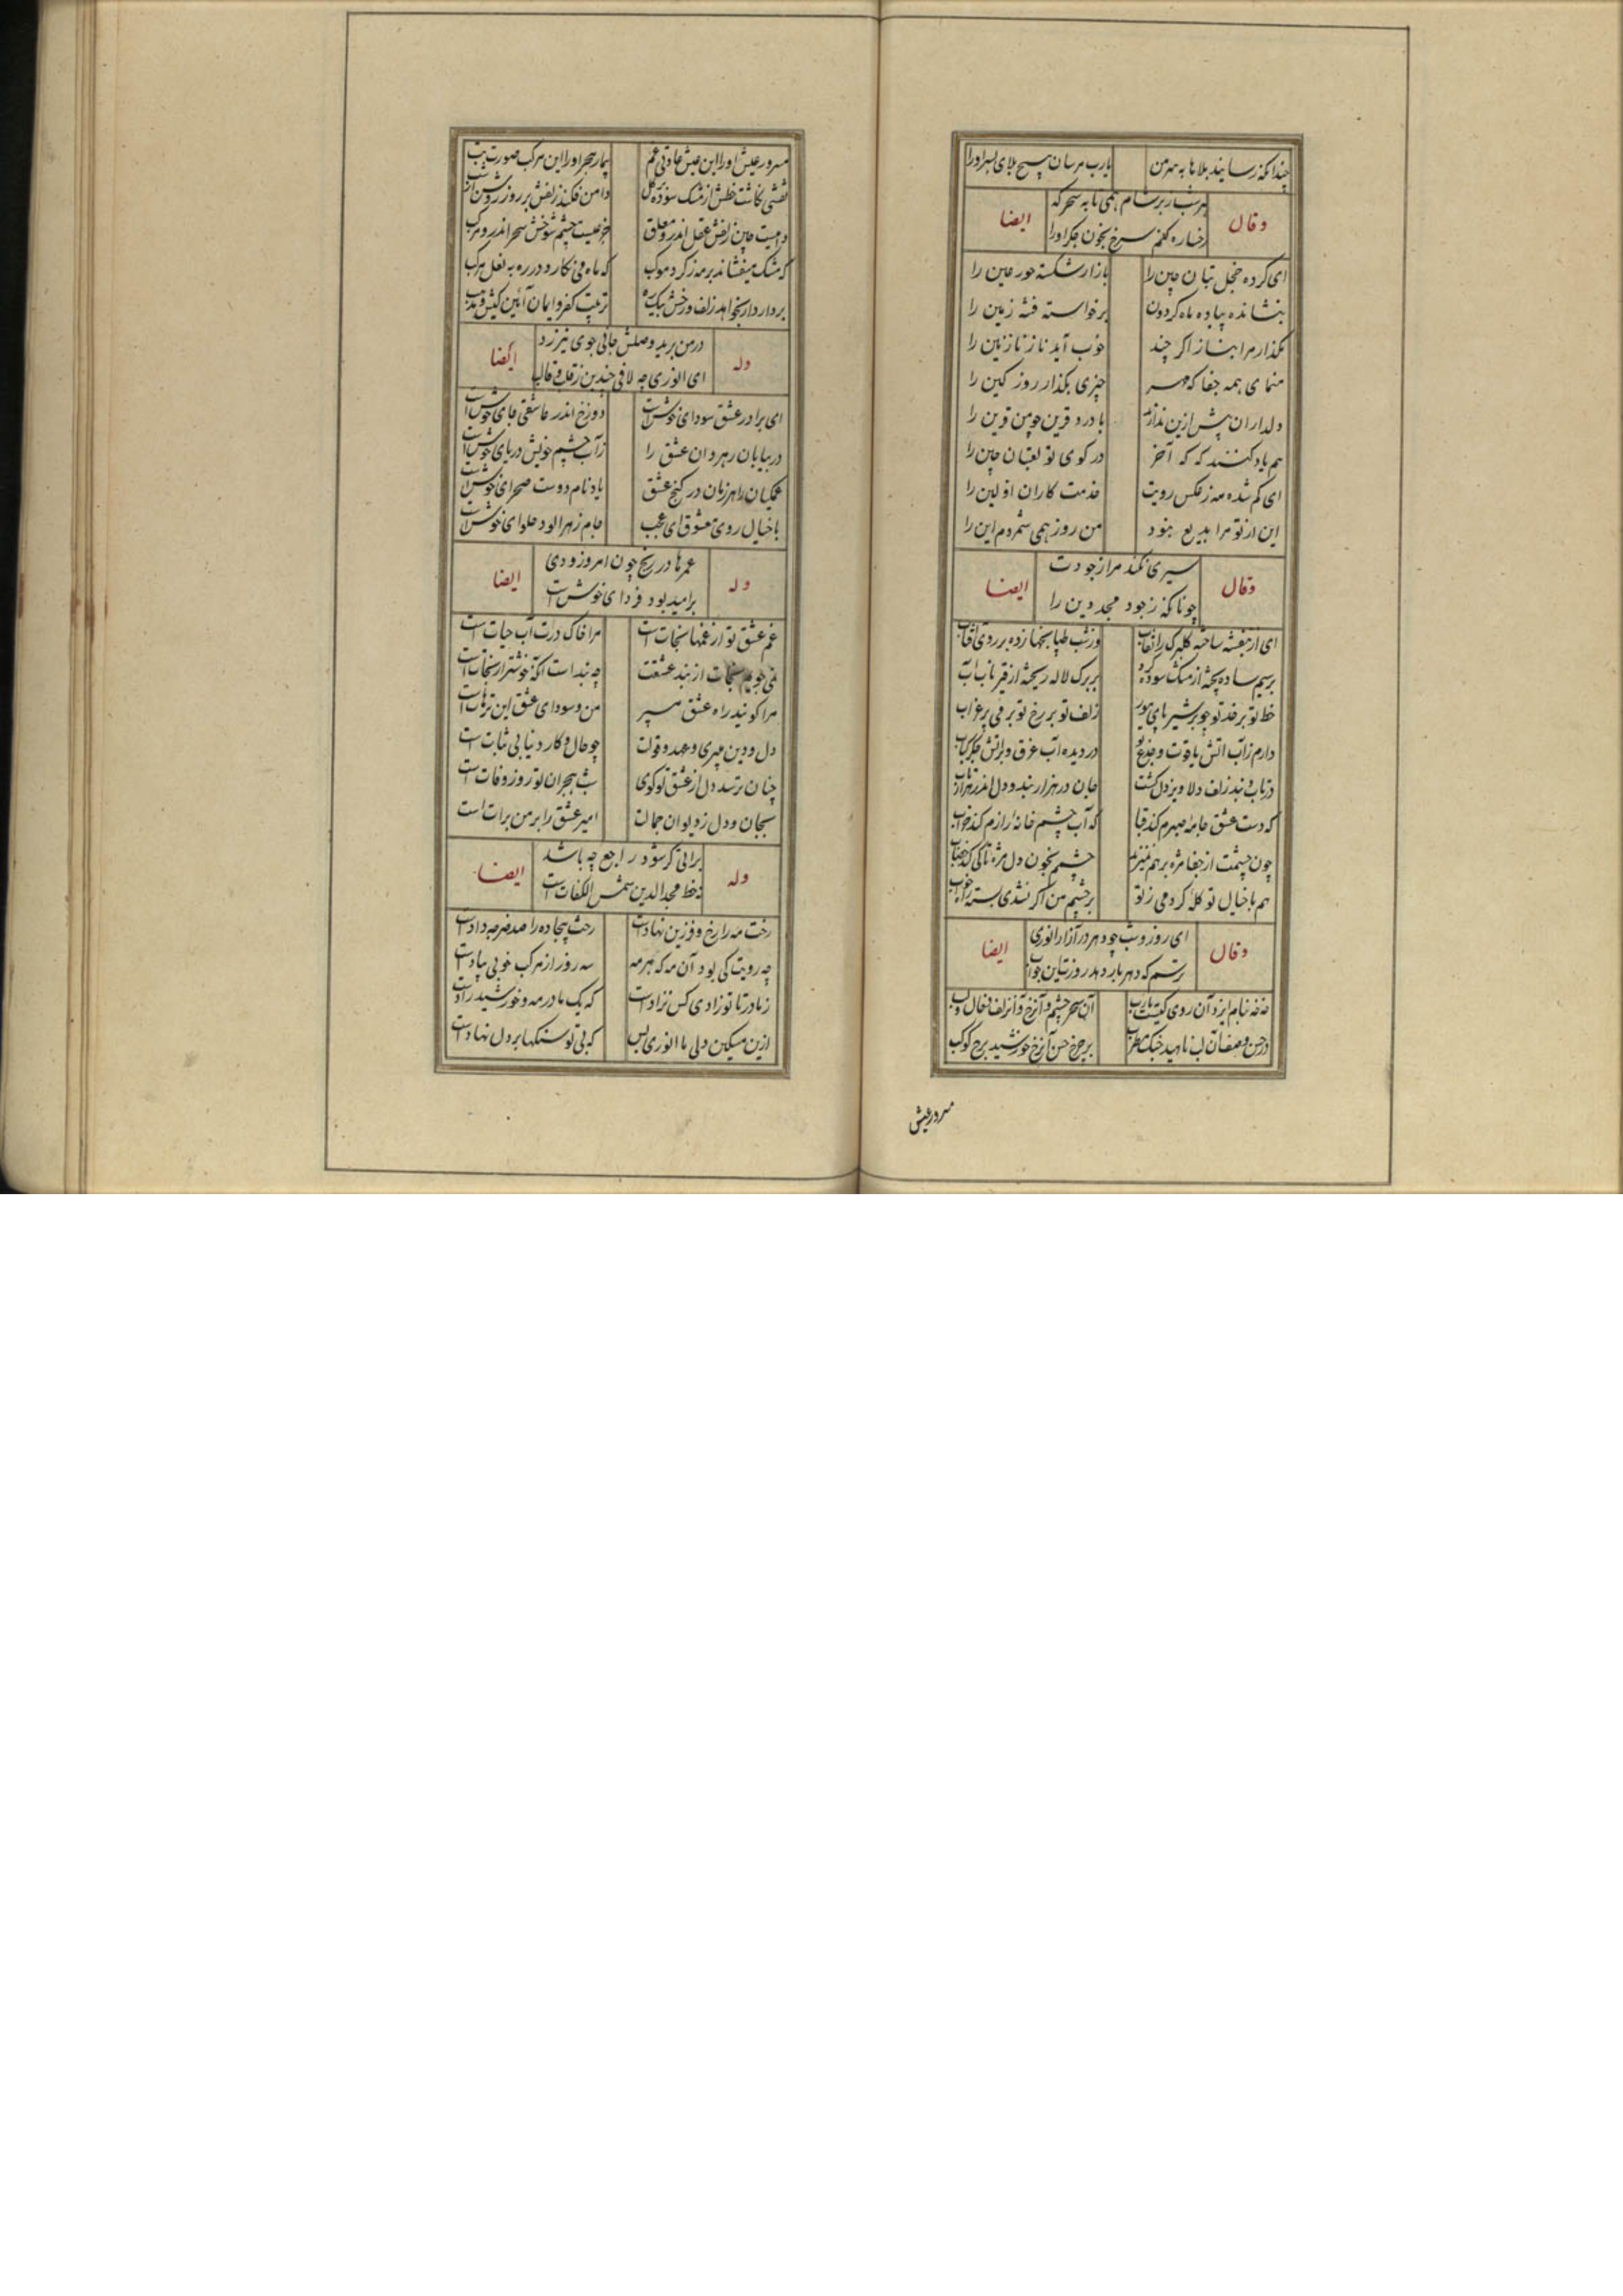 چندانکه رسانید بلاها به سر من یارب مرسان هیچ بلای بسر او را
هر شب ز بر شام همی تا به سحرگه
وقال ایضا
رخساره کنم سرخ بخون جگر او را
ای کرده خجل بتان چین را بازار شکسته حور عین را
بنشانده پیاده ماه گردون برخواسته فتنه زمین را
مگذار مرا بناز اگر چند خوب آید ناز نازنین را
منمای همه جفا که مهر چیزی بگذار روز کین را
دلداران بیش ازین ندارند با درد قرین چو من قرین را
هم یاد کنند که که آخر در کوی تو لعبتان چین را
ای گم شده مه ز عکس رویت خدمت کاران اولین را
این از تو مرا بدیع ننمود من روز همی شمردم این را
سیری نکند مرا ز جودت
وقال ایضا
چونانکه ز جود مجد دین را
ای از بنفشه ساخته گلبرگ را نقاب وز شب طپانچها زده بر روی آفتاب
بر سیم ساده بیخته از مشک سوده گرد بر برگ لاله ریخته از قیر ناب آب
خط تو بر خد تو چو بر شیر پای مور زلف تو بر رخ تو بر می پر غراب
دارم ز آب آتش یاقوت و جزع تو در دیده آب غرق و بر آتش جگر کباب
در تاب و بند زلف دلاویز دل کشت جان در هزار بند و دل اندر هزار تاب
که دست عشق جامه صبرم کند قبا که آب چشم خانه رازم کند خراب
چون چشمت از جفا مژه بر هم نمیزند چشم بخون دل مژه تا کی کند خضاب
هم با خیال تو گله کردمی ز تو بر چشم من اگر نشدی بسته راه خواب
ای روز و شب چو دهر در آزار انوری
وقال ایضا
ترسم که دهر باز دهد روزت این جواب
نه نه نبام ایزد آن روی کیست یارب آن سحر چشم و آن رخ و آن زلف و خال و لب
در حسن و صف آن لب ناهید خنک مطرب بر چرخ حسن آن رخ خورشید برج کوکب
مسرور عیش
مسرور عیش او را این عیش عادتی غم بیمار هجر او را این مرگ صورت تب
نقشی نگاشت خطش از مشک سوده بر گل دامن فکند زلفش بر روز روشن از شب
دامیست چین زلفش عقل اندرو معلق جزعیست چشم شوخش سحر اندرو مرکب
گه مشک میفشاند بر مه ز گرد موکب گه ماه می نگارد در ره به نعل مرکب
بردارد ار بخواهد زلف و رخش بیک ره ترتیب کفر و ایمان آئین کیش و مذهب
در من یزید وصلش جانی جوی نیرزد
وله ایضا
ای انوری چه لافی چندین ز قلب و قالب
ای برادر عشق سودای خوش است دوزخ اندر عاشقی جای خوش است
در بیابان رهروان عشق را ز آب چشم خویش دریای خوش است
غمگیان را هر زمان در کنج عشق یاد نام دوست صحرای خوش است
با خیال روی معشوق ای عجب جام زهر آلود حلوای خوش است
عمرها در رنج چون امروز و دی
وله ایضا
بر امید بود فردای خوش است
غم عشق تو از غمها نجات است مرا خاک درت آب حیات است
نمی جویم نجات از بند عشقت چه بند است آنکه خوشتر از نجات است
مرا گویند راه عشق مسپر من و سودای عشق این ترهات است
دل و دین میبری و عهد و قولت چو حال و کار دنیا بی ثبات است
چنان ترسد دل از عشق تو گوی شب هجران تو روز وفات است
بجان و دل ز دیوان جمالت امیر عشق را بر من برات است
براتی گر شود راجع چه باشد
وله ایضا
نه خط مجد الدین شمس الکفات است
رخت مه را رخ و فرزین نهادست رخت بیجاده را صد ضربه دادست
چه رویت کی بود آن مه که هر مه سه روز از مرکب خوبی پیادست
ز مادر تا تو زادی کس نزادست که یک مادر مه و خورشید زادست
ازین مسکین دلی ما انوری بس که بی تو سنگها بر دل نهادست